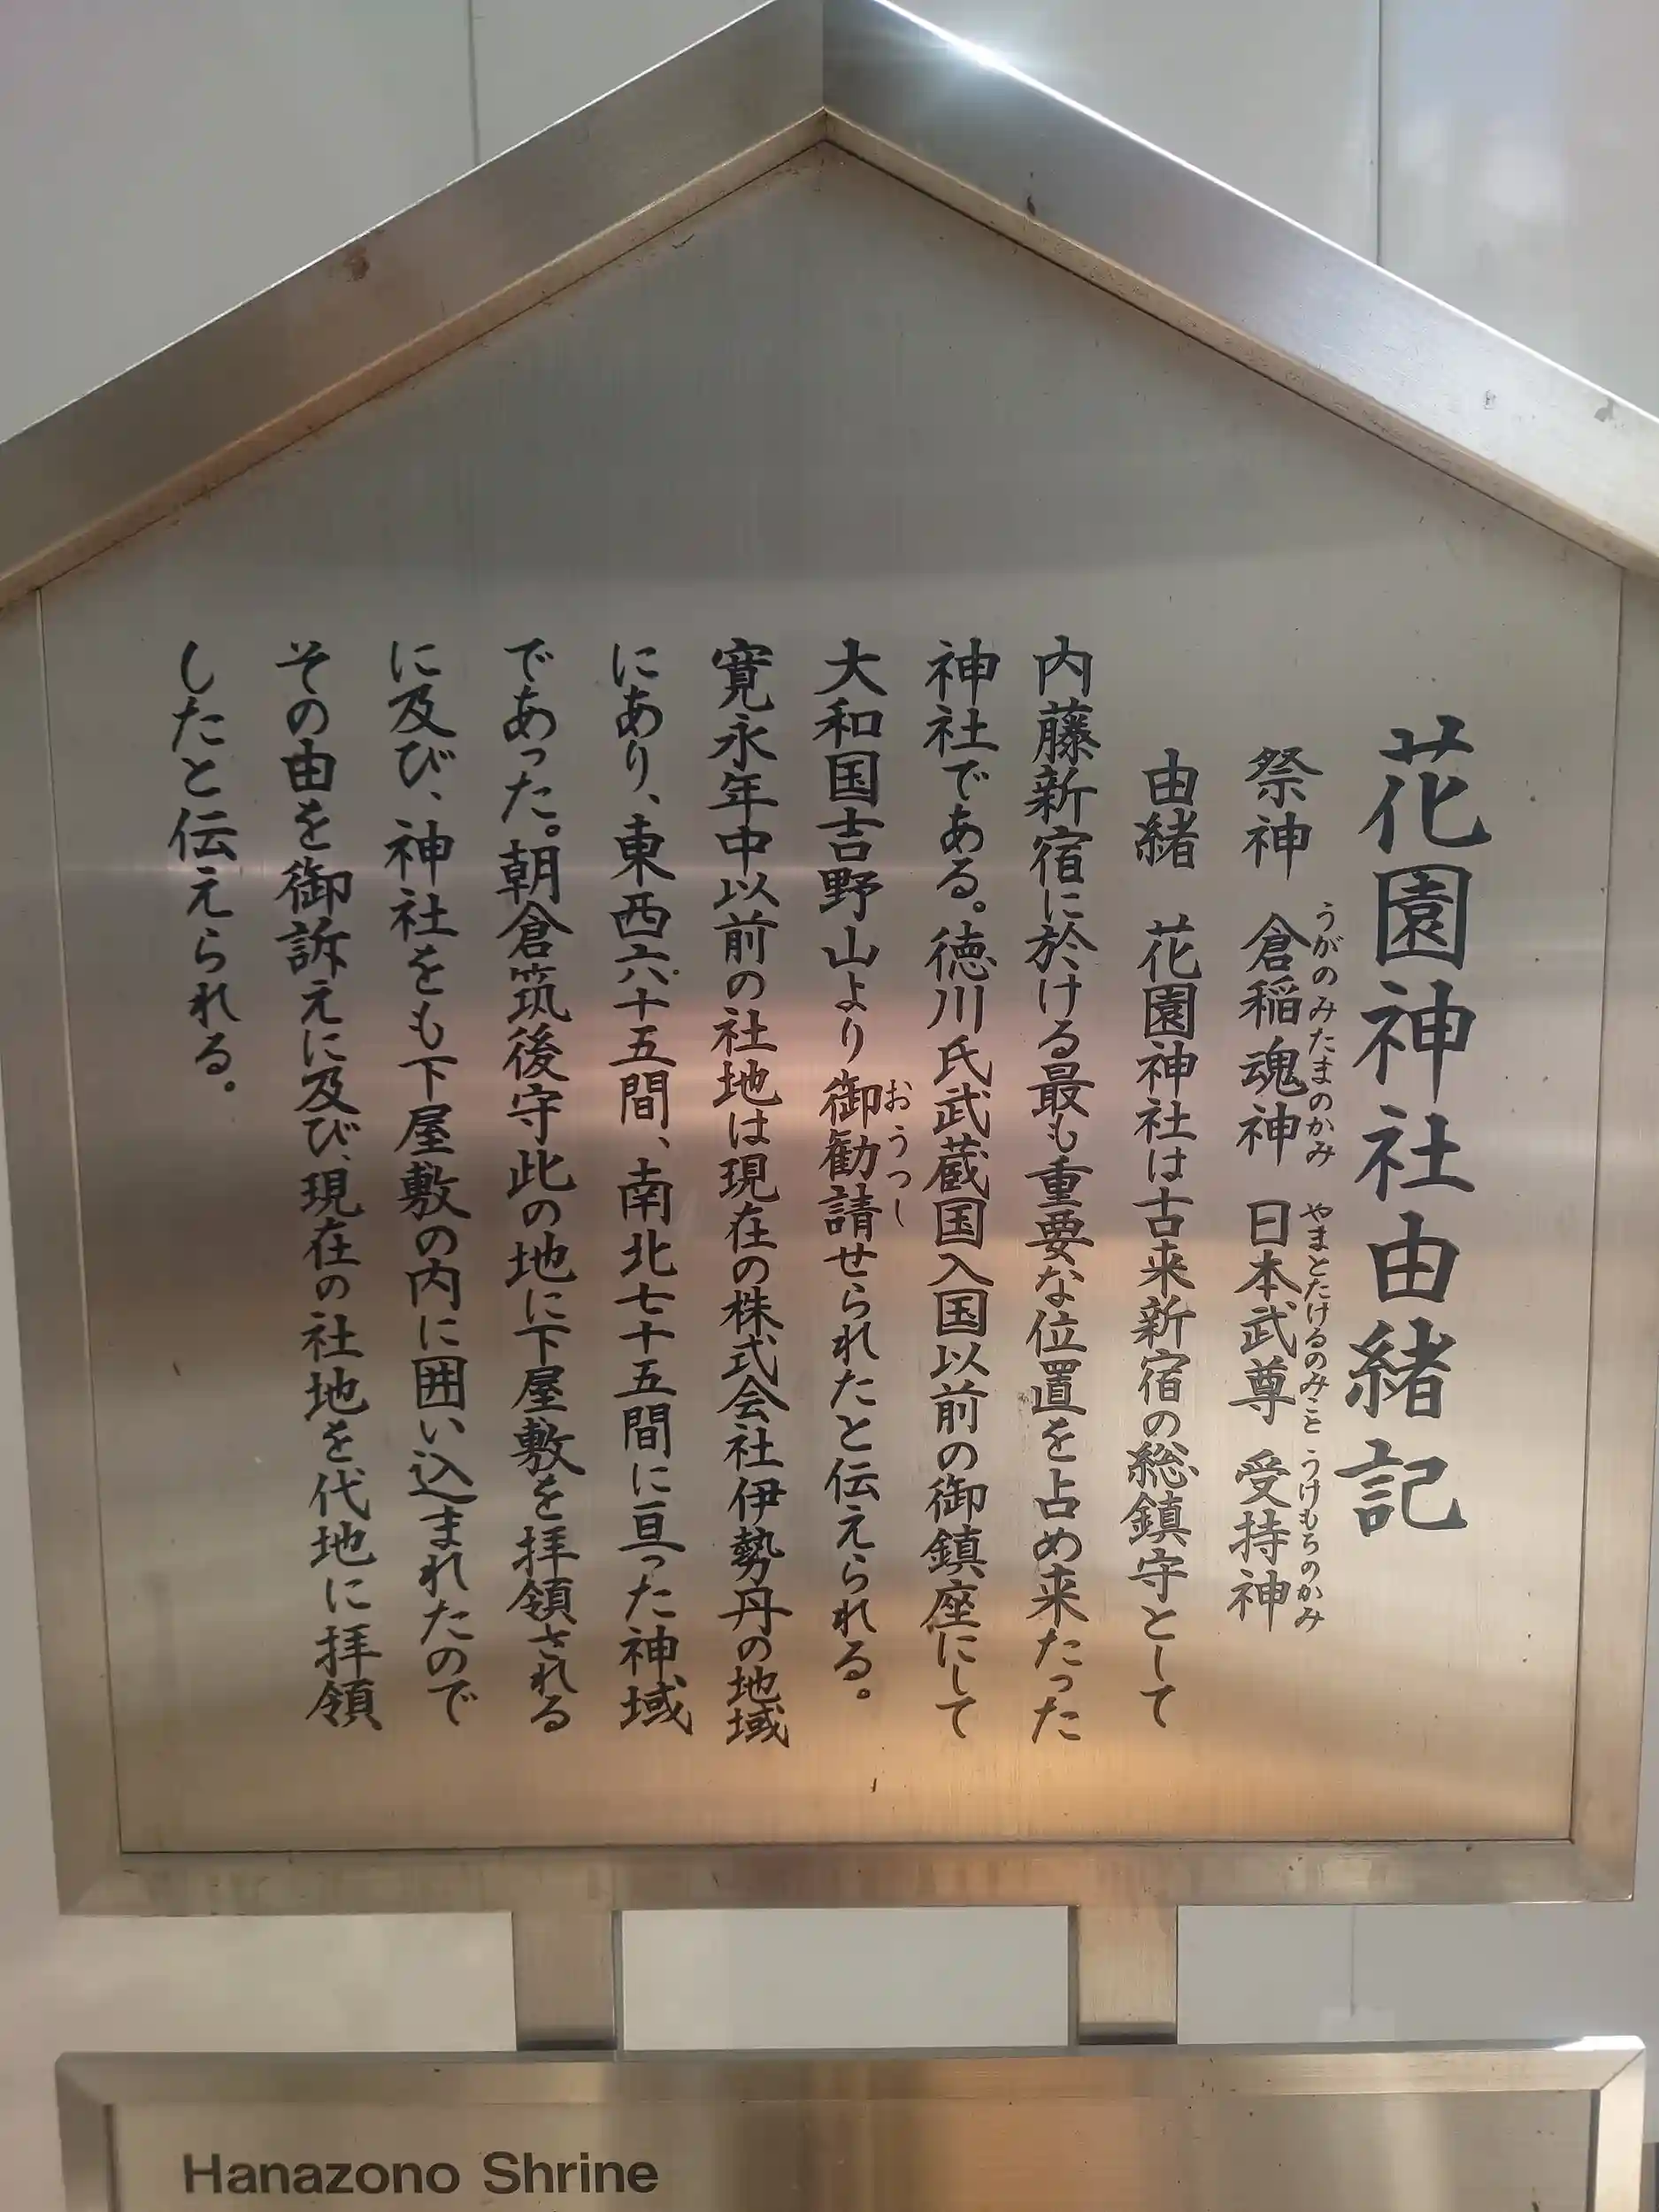 花園神社由緒記
祭神　倉稲魂神　日本武尊　受持神
うがのみたまのかみ　やまとたけるのみこと　うけもちのかみ
由緒　花園神社は古来新宿の総鎮守として
内藤新宿に於ける最も重要な位置を占め来たった
神社である。徳川氏武蔵国入国以前の御鎮座にして
大和国吉野山より御勧請せられたと伝えられる。
おうつし
寛永年中以前の社地は現在の株式会社伊勢丹の地域
にあり、東西六十五間、南北七十五間に亘った神域
であった。朝倉筑後守此の地に下屋敷を拝領される
に及び、神社をも下屋敷の内に囲い込まれたので
その由を御訴えに及び、現在の社地を代地に拝領
したと伝えられる。
Hanazono Shrine